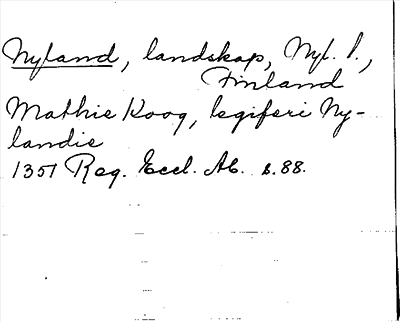 Nyland, landskap, Nyl. l.,
Finland
Mathie Koog, legiferi Ny-
landie
1351 Reg. Eccl. Ab. s. 88.